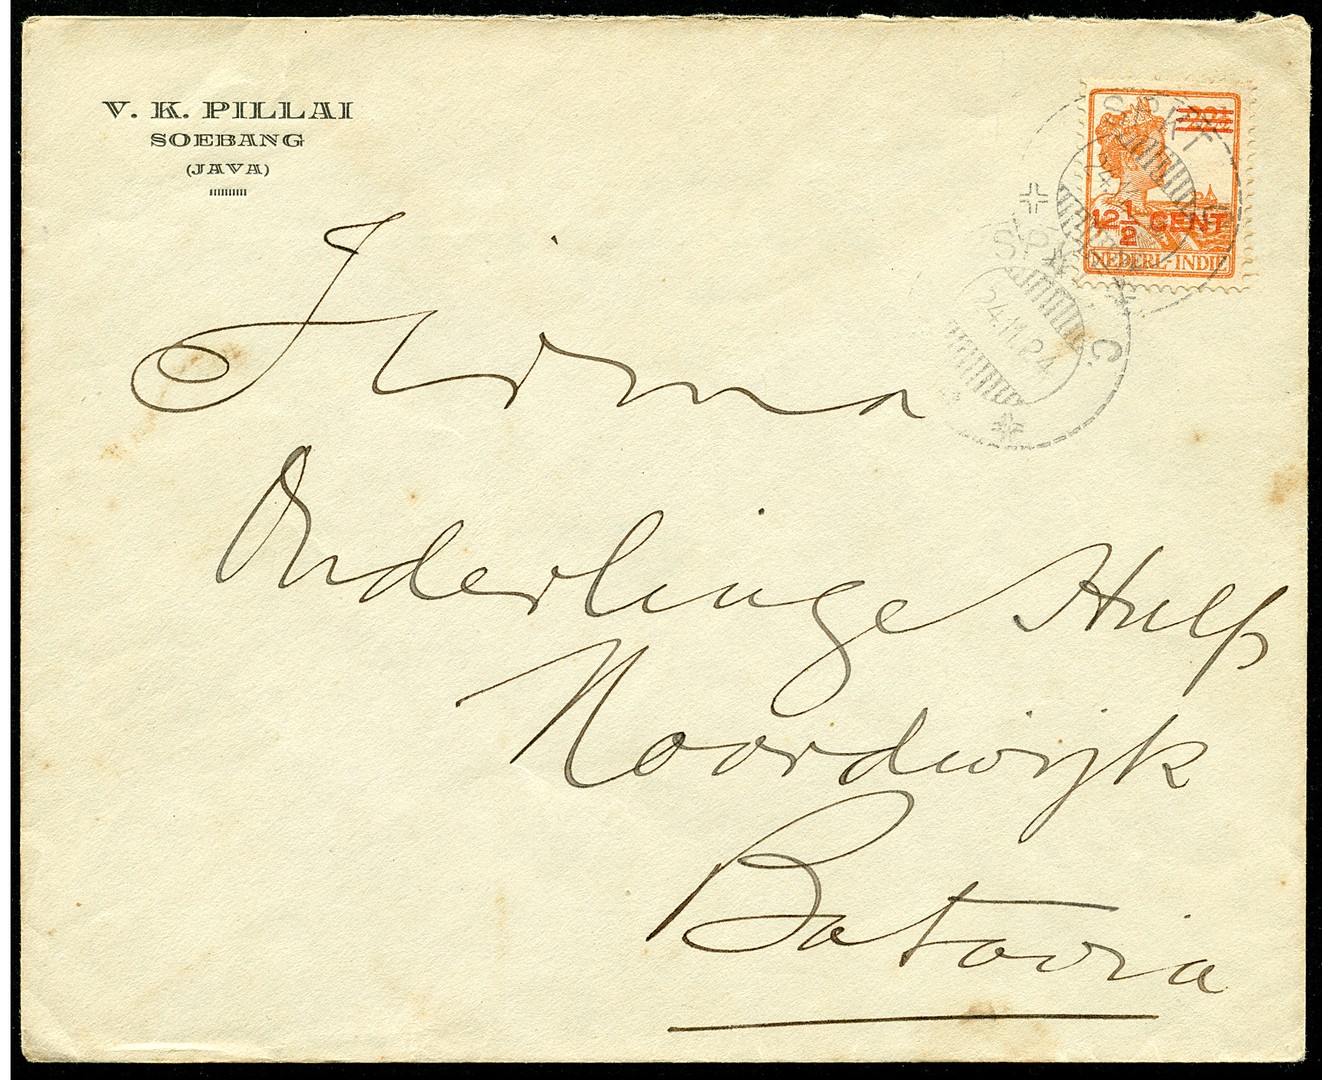 V. K. PILLAI
SOEBANG
(JAVA)
12½ CENT
NEDERL-INDIE
24.11.24
Firma
Onderlinge Hulp
Noordwijk
Batavia